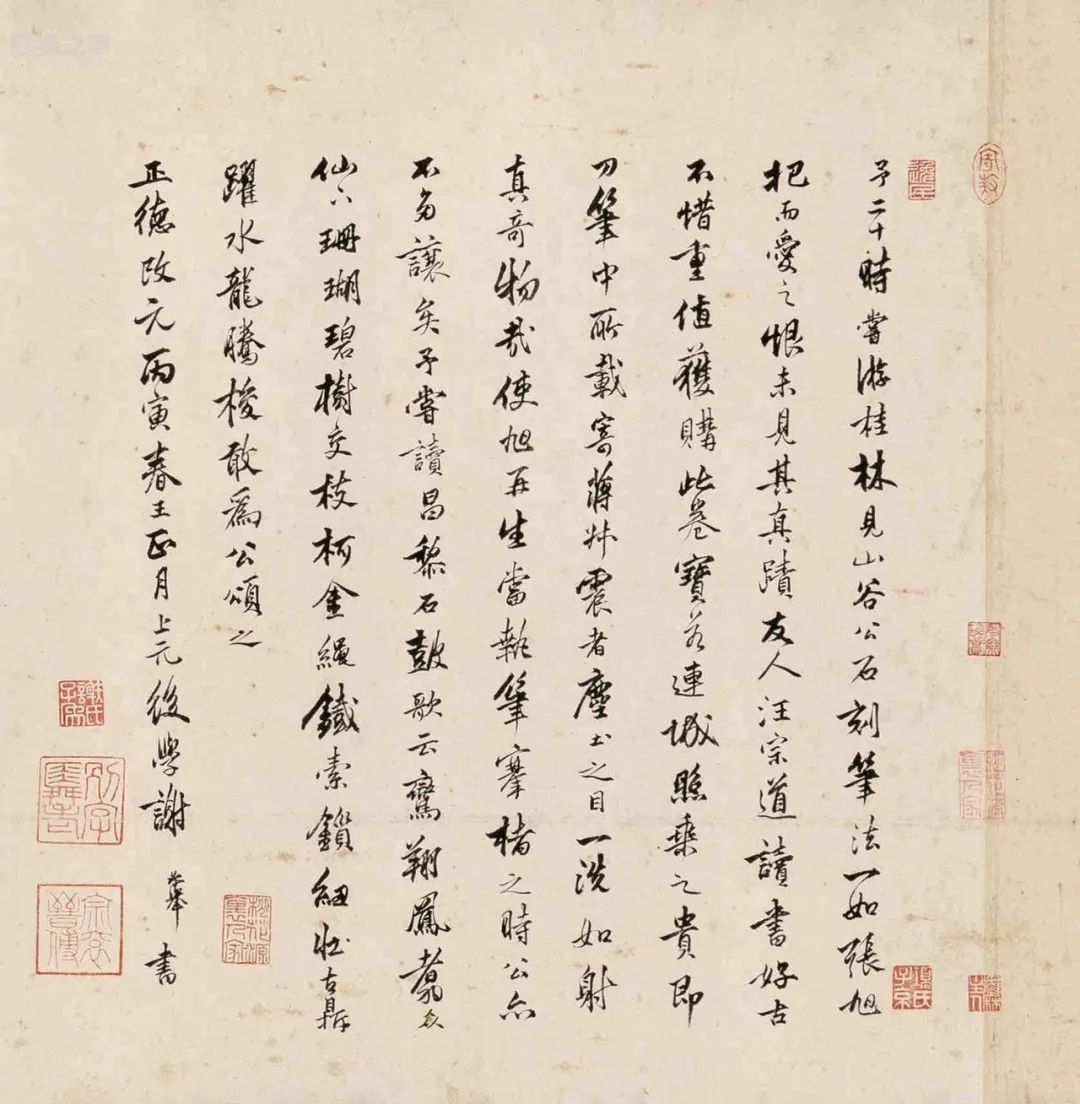 予二十時嘗游桂林見山谷公石刻筆法一如張旭
把而愛之恨未見其真蹟友人汪宗道讀書好古
不惜重值獲購此卷寶若連城照乘之貴即
刀筆中所載寄蔣震者塵土之目一洗如射
真奇物哉使旭再生當執筆摹楮之時公亦
不多讓矣予嘗讀昌黎石鼓歌云鸞翔鳳翥众
仙下珊瑚碧樹交枝柯金繩鐵索鎖紐壯古鼎
躍水龍騰梭敢爲公頌之
正德改元丙寅春王正月上元後學謝書
項氏子京
桃花源裏人家
逸民